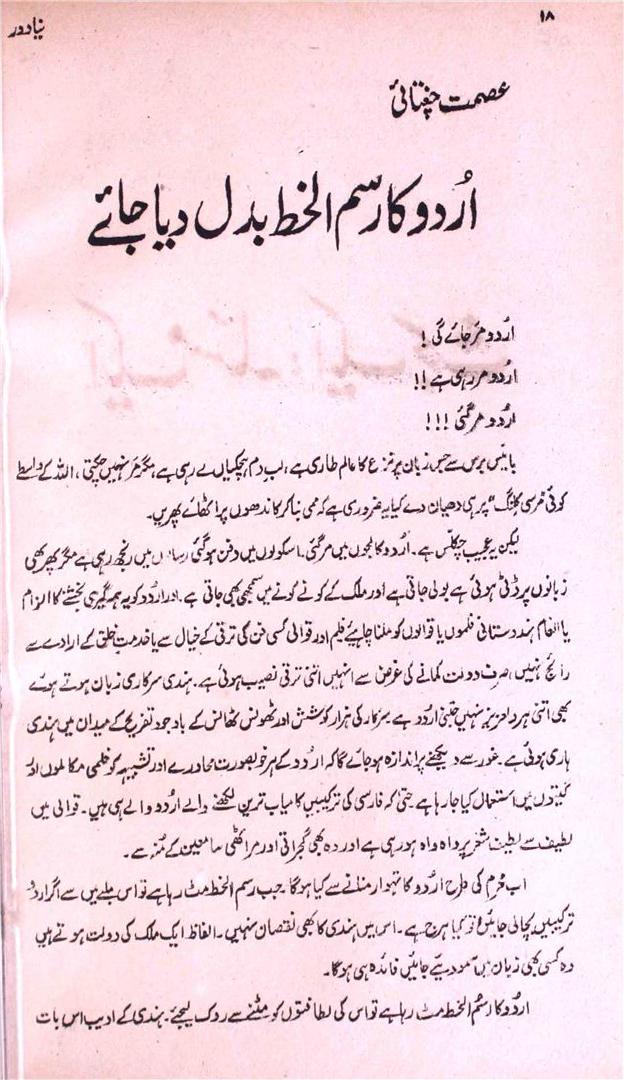 ۱۸
نیا دور
عصمت چغتائی
اُردو کا رسم الخط بدل دیا جائے
اردو مر جائے گی !
اردو مر رہی ہے !!
اردو مر گئی !!!
بائیس برس سے جس زبان پر نزع کا عالم طاری ہے، لب دم ہچکیاں لے رہی ہے، مگر مر نہیں چکتی، اللہ کے واسطے
کوئی مرسی کلنگ" پر ہی دھیان دے کیا یہ ضروری ہے کہ ممی بنا کر کاندھوں پر اٹھائے پھریں۔
لیکن یہ عجیب چکلس ہے۔ اردو کالجوں میں مر گئی۔ اسکولوں میں دفن ہو گئی رسالوں میں رہی ہے مگر پھر بھی
زبانوں پر ڈٹی ہوئی ہے بولی جاتی ہے اور ملک کے کونے کونے میں سمجھی بھی جاتی ہے۔ اور اردو کو یہ ہمہ گیری بخشنے کا الزام
یا انعام ہندوستانی فلموں یا قوالوں کو ملنا چاہیے فلم اور قوالی کسی فن کی ترقی کے خیال سے یا خدمتِ خلق کے ارادے سے
رائج نہیں، صرف دولت کمانے کی غرض سے انہیں اتنی ترقی نصیب ہوئی ہے۔ ہندی سرکاری زبان ہوتے ہوئے
بھی اتنی ہر دلعزیز نہیں جتنی اردو ہے سرکار کی ہزار کوشش اور ٹھونس ٹھانس کے باوجود تفریح کے میدان میں ہندی
ہاری ہوئی ہے۔ غور سے دیکھنے پر اندازہ ہو جائے گا کہ اردو کے ہر خوبصورت محاورے اور تشبیہہ کو فلمی مکالموں اور
گیتوں میں استعمال کیا جا رہا ہے حتیٰ کہ فارسی کی ترکیبیں کامیاب ترین لکھنے والے اردو والے ہی ہیں۔ قوالی میں
لطیف سے لطیف شعر پر واہ واہ ہو رہی ہے اور وہ بھی گجراتی اور مراٹھی سامعین کے منہ سے۔
اب محرم کی طرح اردو کا تہوار منانے سے کیا ہوگا۔ جب رسم الخط مٹ رہا ہے تو اس ملبے میں سے اگر اردو
ترکیبیں بچالی جائیں تو کیا ہرج ہے۔ اس میں ہندی کا بھی نقصان نہیں۔ الفاظ ایک ملک کی دولت ہوتے ہیں
وہ کسی بھی زبان میں سمو دیئے جائیں فائدہ ہی ہوگا۔
اردو کا رسم الخط مٹ رہا ہے تو اس کی لطافتوں کو مٹنے سے روک لیجئے۔ ہندی کے ادیب اس بات